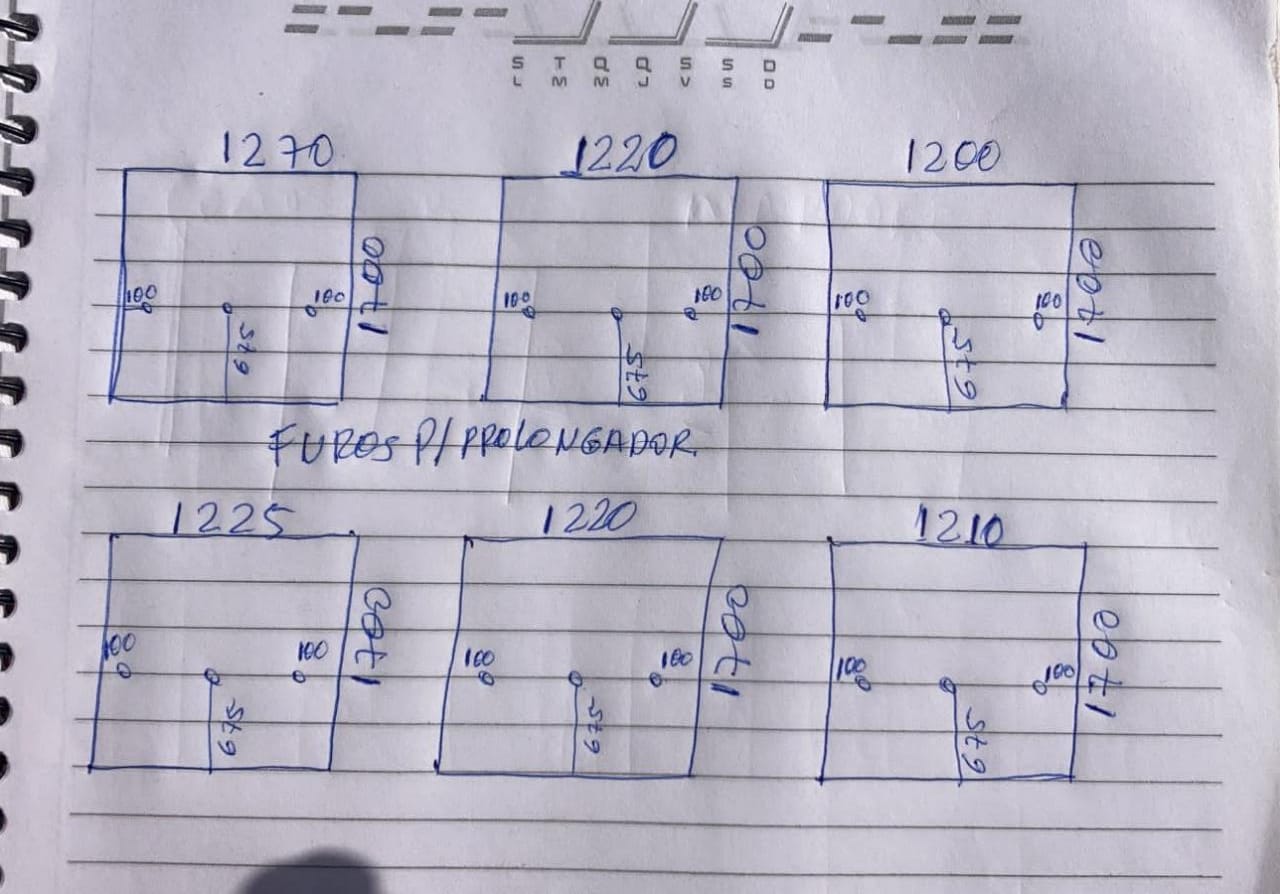 S T Q Q S S D
L M M J V S D
1270 1220 1200
1700 1700 1700
100 100 100 100 100 100
675 675 675
FUROS P/ PROLONGADOR
1225 1220 1210
1700 1700 1700
100 100 100 100 100 100
675 675 675